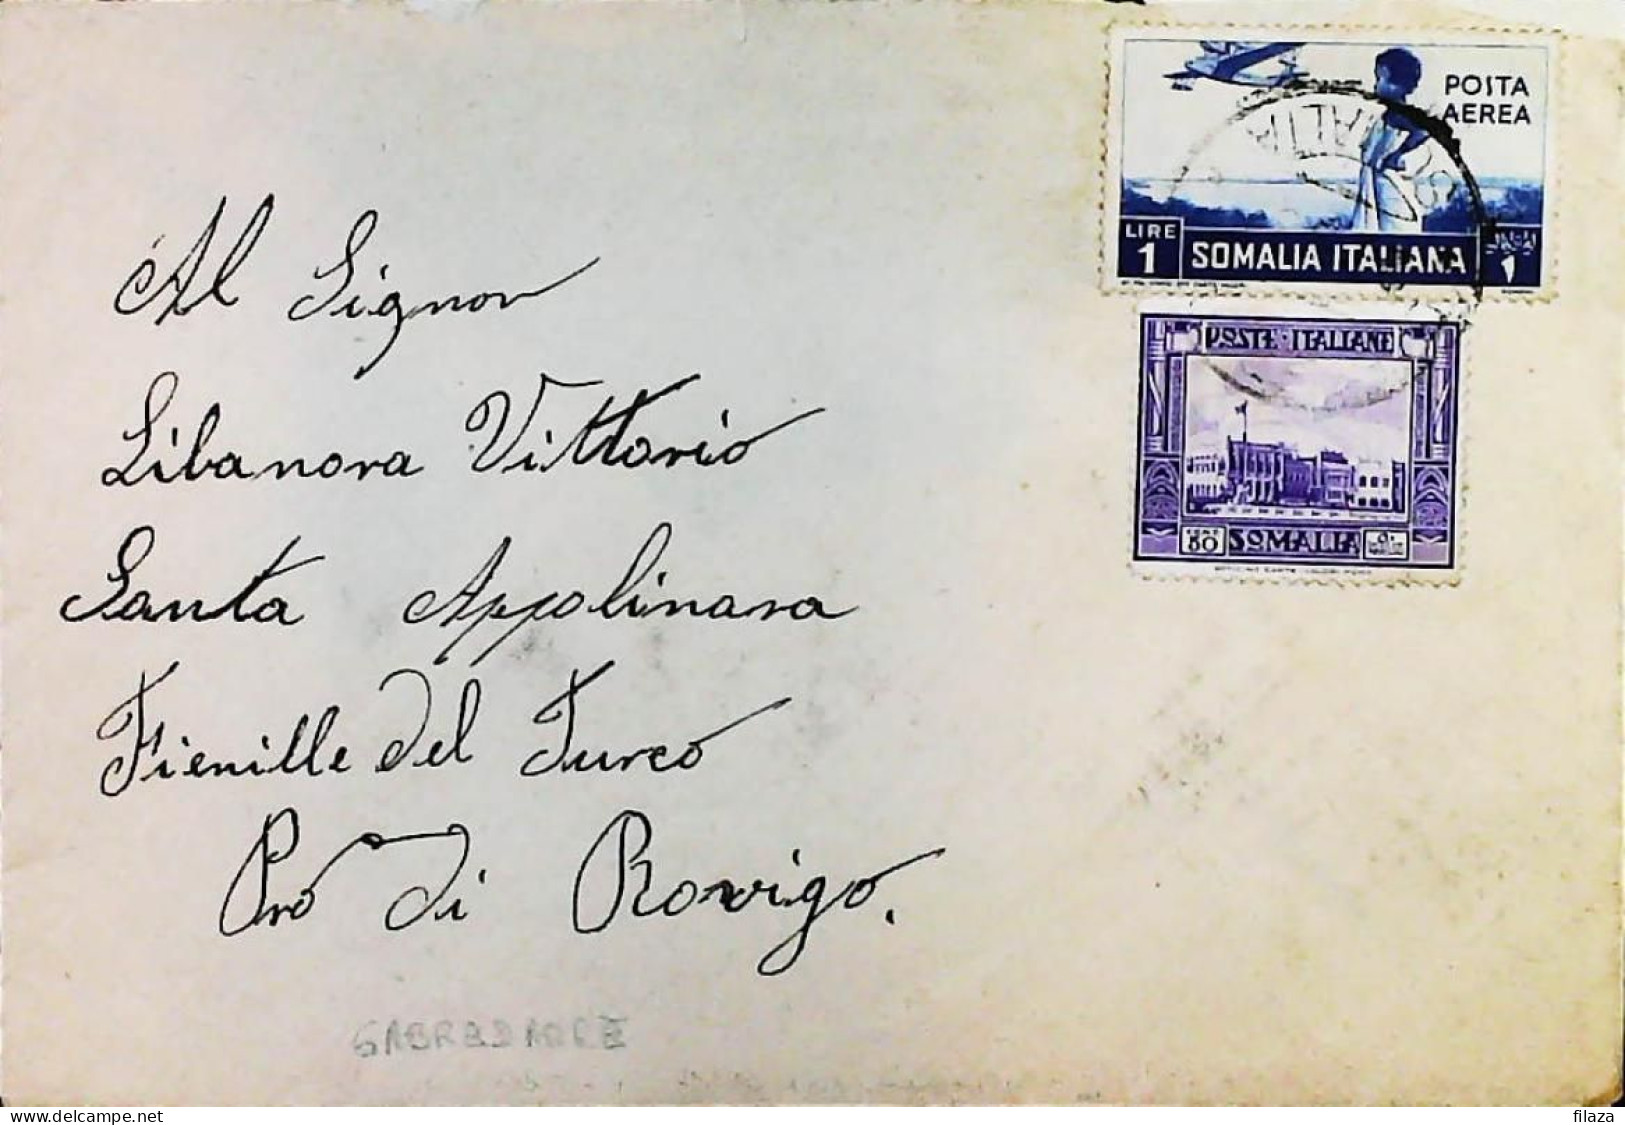 POSTA
AEREA
LIRE
1
SOMALIA ITALIANA
1
POSTE ITALIANE
80
SOMALIA
Al Signor
Libanora Vittorio
Santa Appolinara
Fienille del Turco
Pro di Rovigo.
filaza